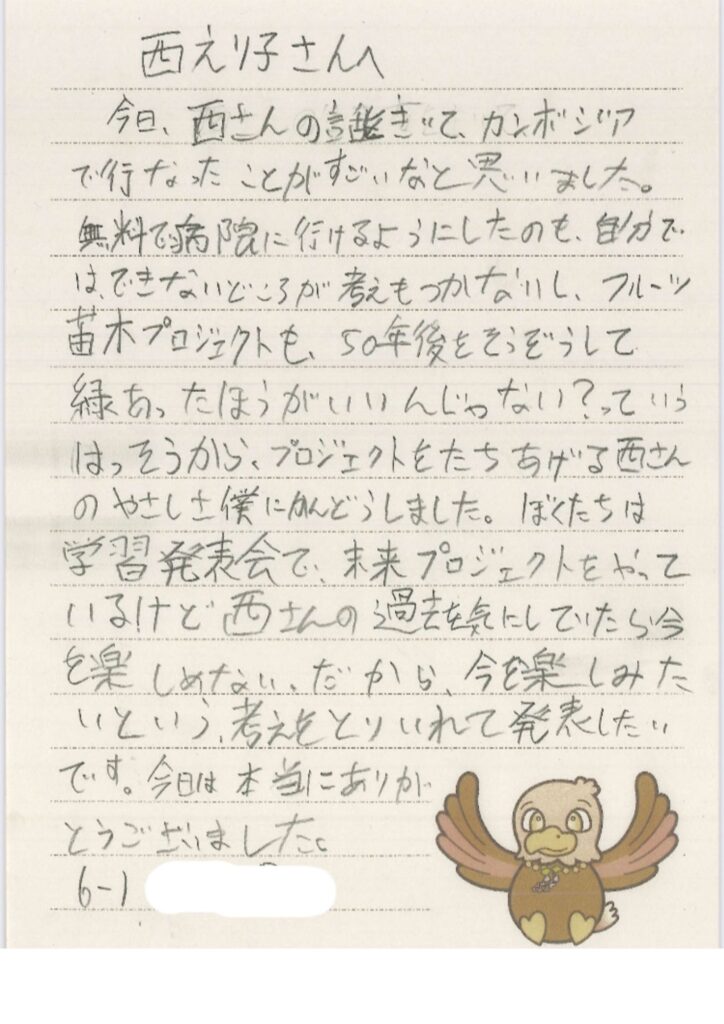 西えり子さんへ
今日、西さんの話をきいて、カンボジア
で行なったことがすごいなと思いました。
無料で病院に行けるようにしたのも、自分で
は、できないどころが考えもつかないし、フルーツ
苗木プロジェクトも、50年後をそうぞうして
緑あったほうがいいんじゃない？っていう
はっそうから、プロジェクトをたちあげる西さん
のやさしさ僕にかんどうしました。ぼくたちは
学習発表会で、未来プロジェクトをやって
いるけど西さんの過去を気にしていたら今
を楽しめない、だから、今を楽しみた
いという、考えをとりいれて発表したい
です。今日は本当にありが
とうございました。
6-1